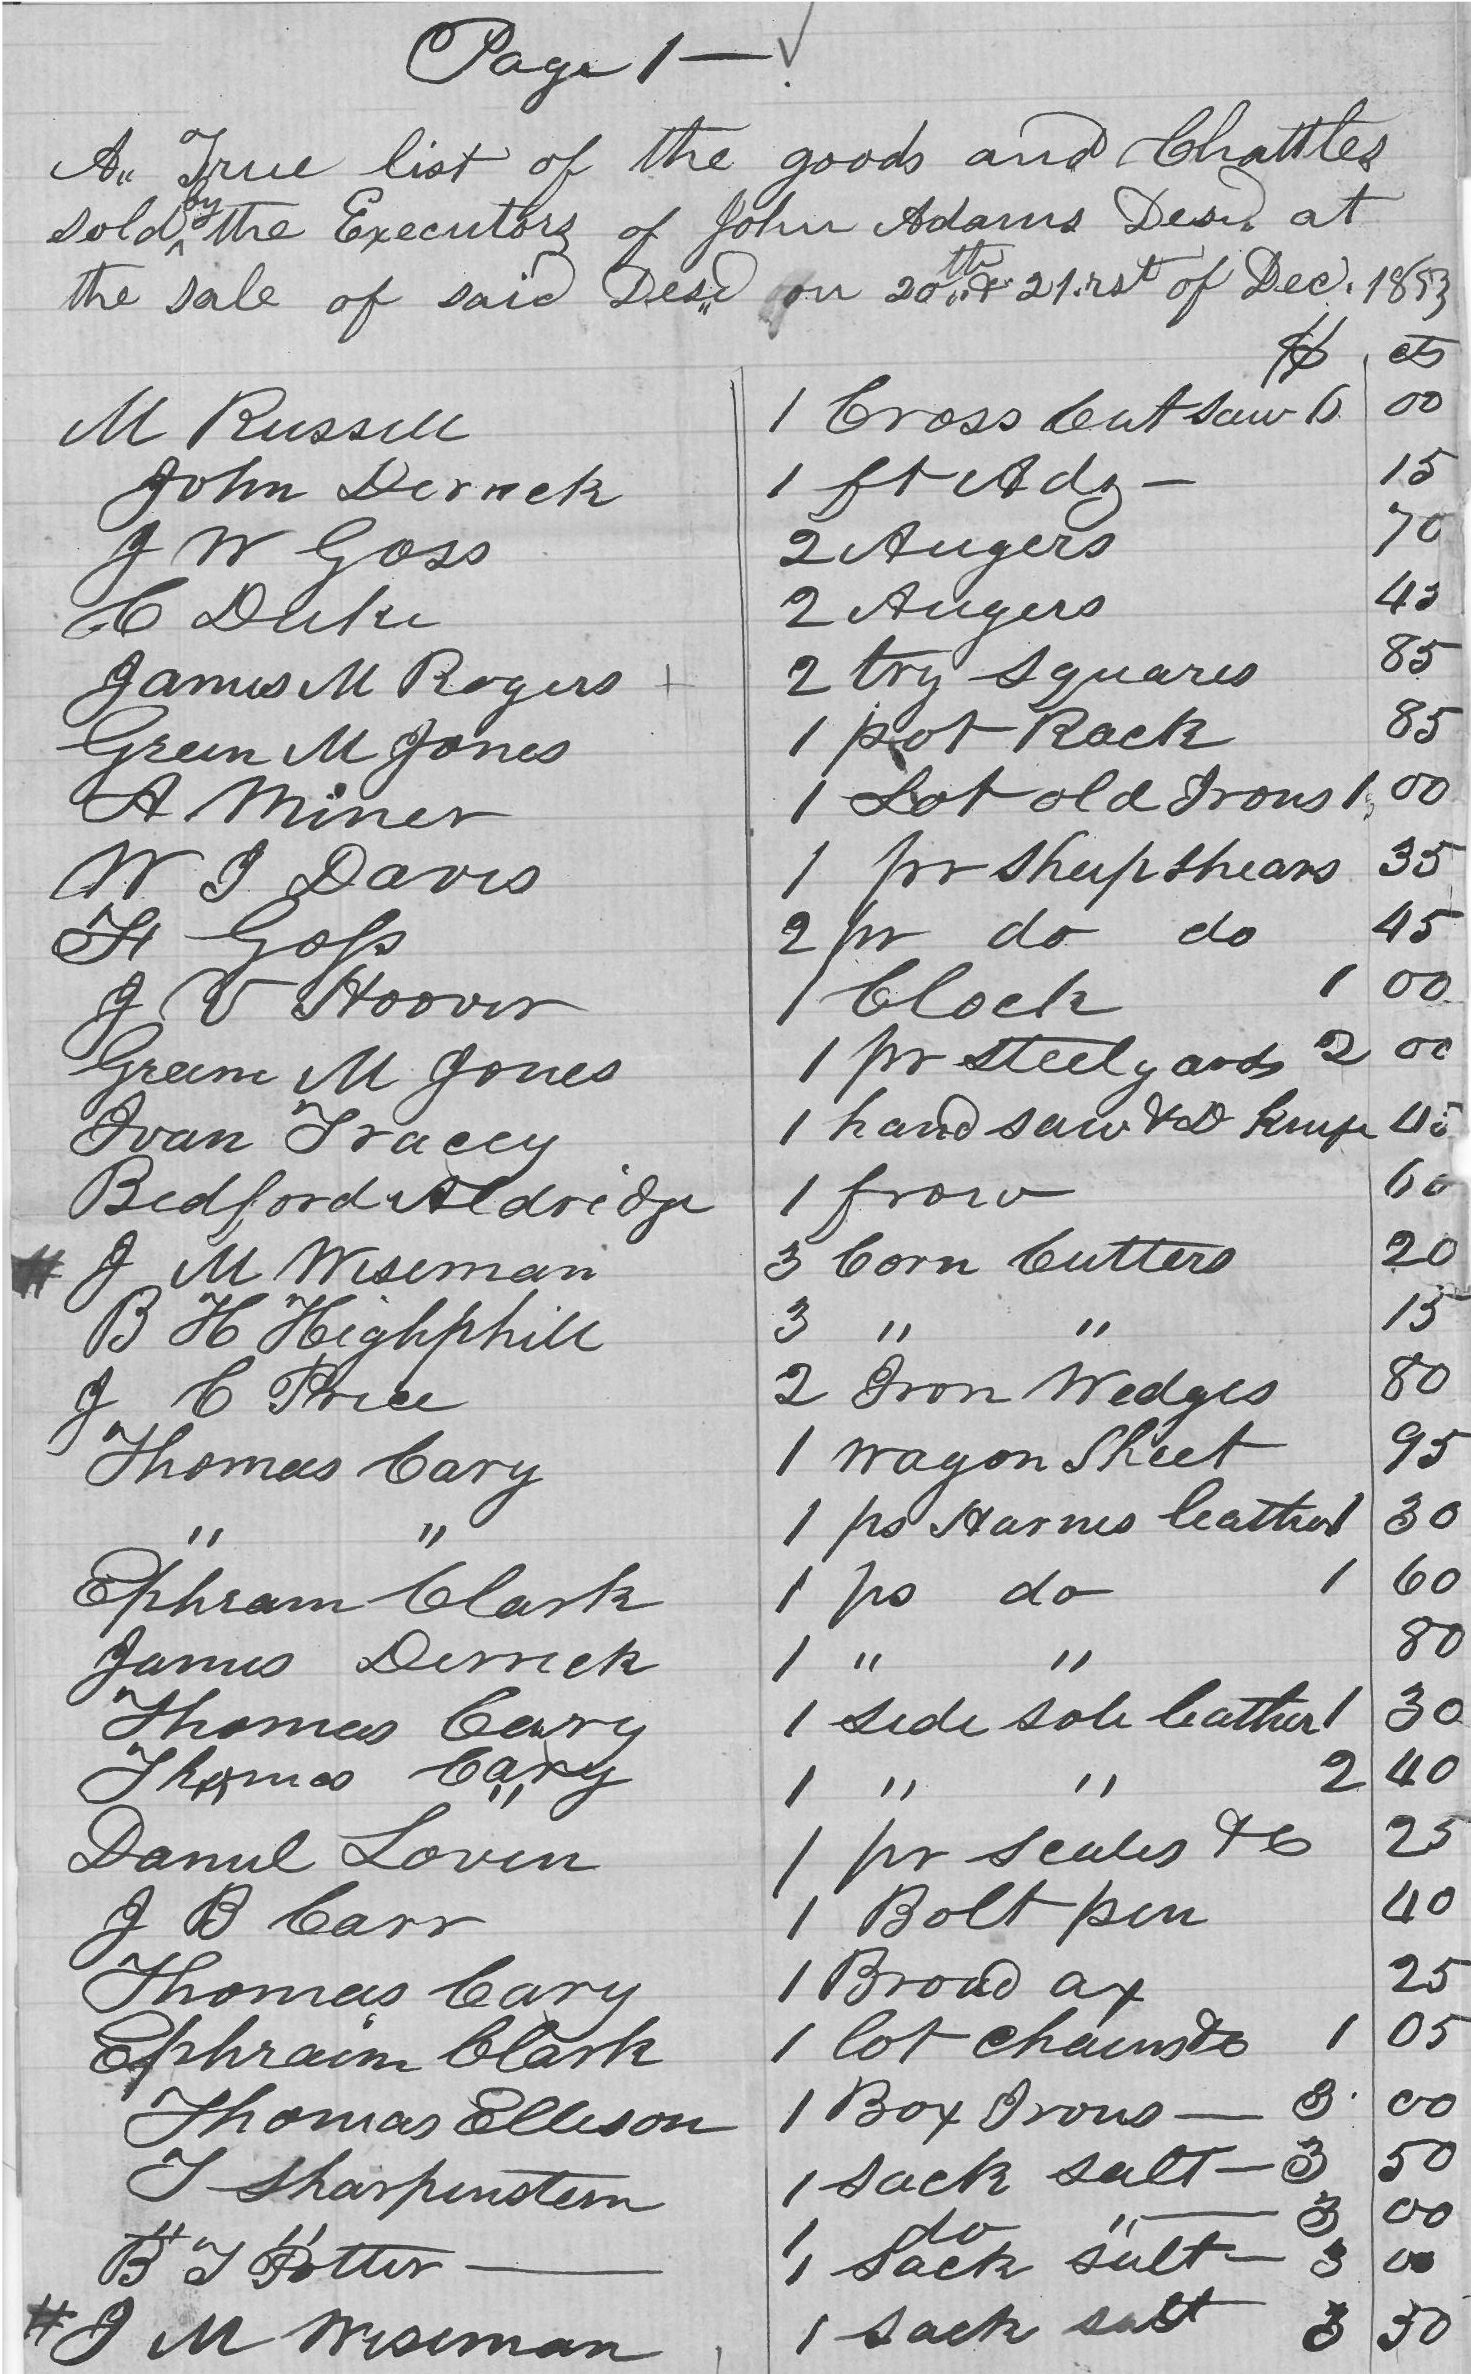 Page 1 —
A,, True list of the goods and Chattles
sold by the Executors of John Adams Desd. at
the sale of said Desd on 20th & 21.rst of Dec. 1853
$ cts
M Russell 1 Cross Cut saw 6 00
John Derrick 1 ft Adz — 15
J W Goss 2 Augers 70
C Duke 2 Augers 45
James M Rogers 2 try squares 85
Green M Jones 1 pot Rack 85
A Miner 1 Lot old Irons 1 00
W J Davis 1 pr sheep shears 35
H Goss 2 pr do do 45
J V Hoover 1 Clock 1 00
Green M Jones 1 pr steelyards 2 00
Ivan Tracey 1 hand saw & D Knife 45
Bedford Aldridge 1 frow 60
# J M Wiseman 3 Corn Cutters 20
B H Highphill 3 " " 15
J C Price 2 Iron Wedges 80
Thomas Cary 1 wagon Sheet 95
" " 1 ps Harnes leather 1 30
Ephram Clark 1 ps do 1 60
James Derrick 1 " " 80
Thomas Cary 1 side sole leather 1 30
Thomas Cary 1 " " 2 40
Daniel Loven 1 pr scales &c 25
J B Carr 1 Bolt pin 40
Thomas Cary 1 Broad ax 25
Ephraim Clark 1 lot chains &c 1 05
Thomas Elleson 1 Box Irons — 3 00
T Sharpenstern 1 sack salt — 3 50
" " 1 do " — 3 00
B T Potter — 1 sack salt — 3 00
# J M Wiseman 1 sack salt 3 50